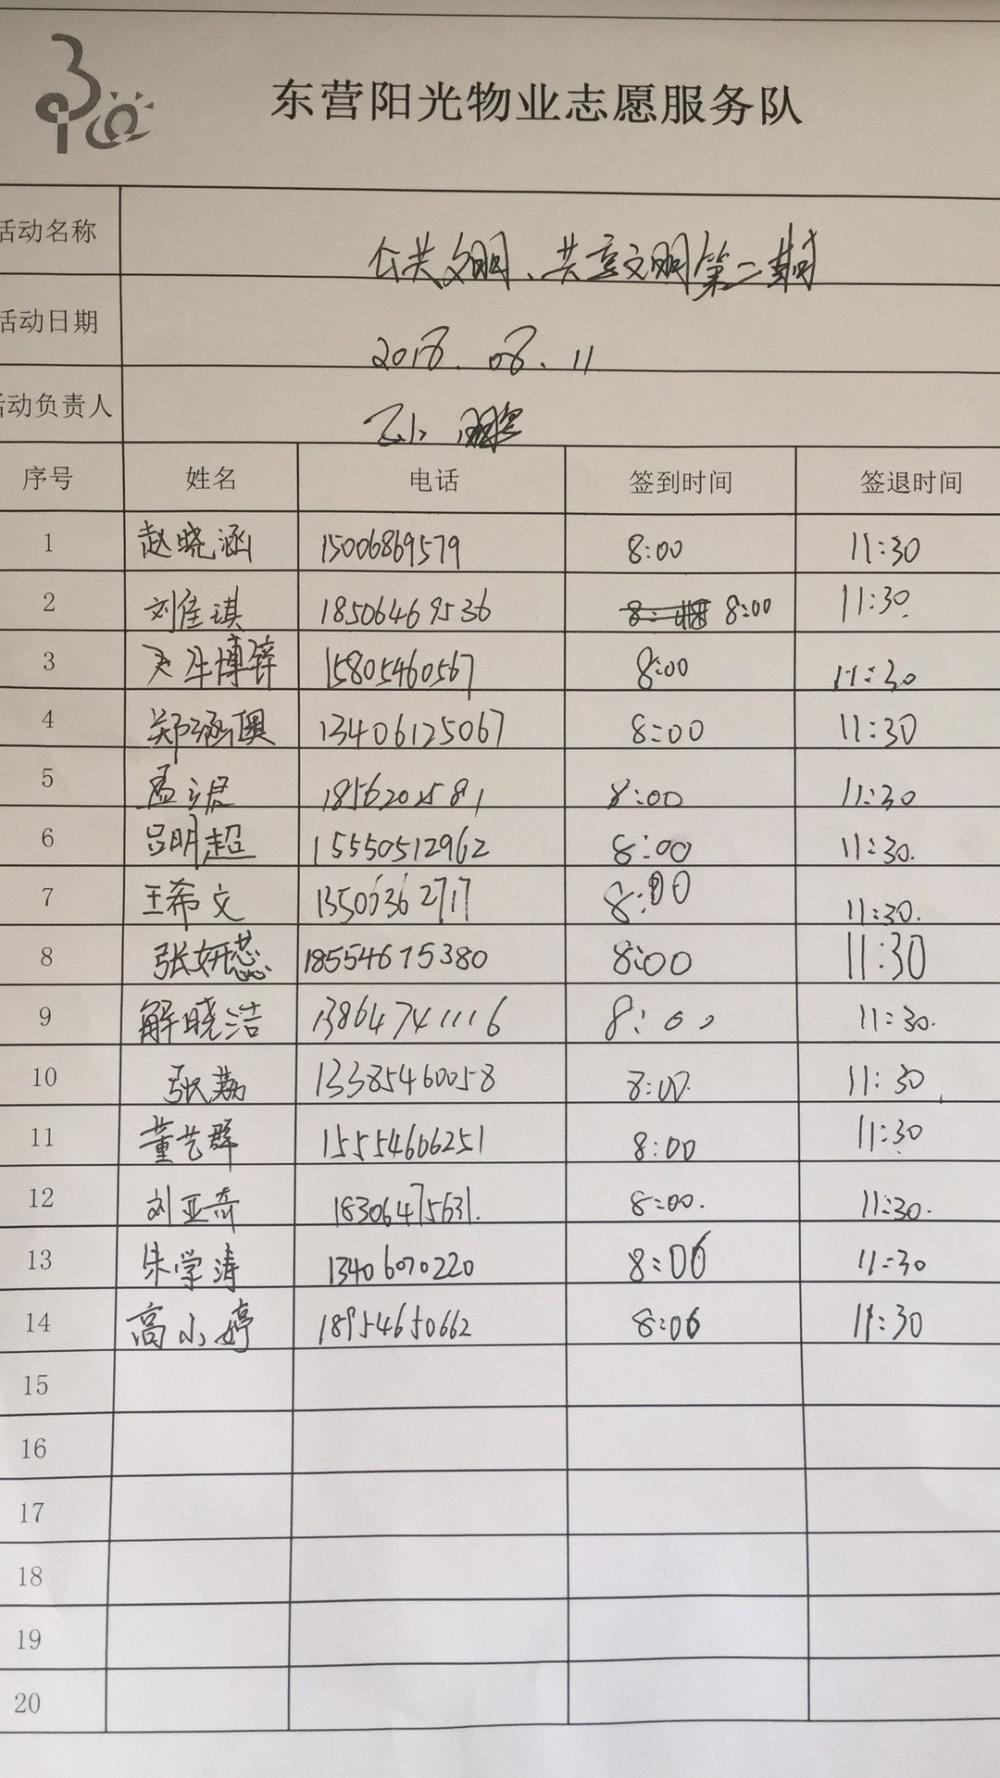 东营阳光物业志愿服务队
活动名称 公共文明、共享文明第二期
活动日期 2018.08.11
活动负责人
序号 姓名 电话 签到时间 签退时间
1 赵晓涵 15006869579 8:00 11:30
2 刘佳琪 18506469536 8:00 11:30
3 博 15805460567 8:00 11:30
4 郑涵 13406125067 8:00 11:30
5 孟 8:00 11:30
6 吕明超 15550512962 8:00 11:30
7 王希文 13506362717 8:00 11:30
8 张妍蕊 18554675380 8:00 11:30
9 解晓洁 13864741116 8:00 11:30.
10 张荔 13385460058 8:00 11:30
11 董艺群 15554606251 8:00 11:30
12 刘亚奇 18306475631. 8:00. 11:30.
13 朱学涛 13406070220 8:00 11:30
14 高小婷 18954650662 8:00 11:30
15
16
17
18
19
20